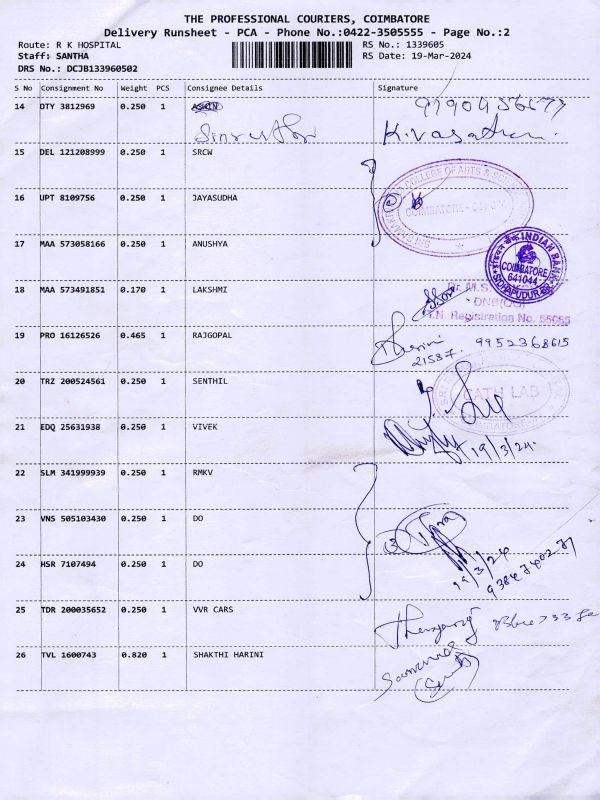 THE PROFESSIONAL COURIERS, COIMBATORE
Delivery Runsheet - PCA - Phone No.:0422-3505555 - Page No.:2
Route: R K HOSPITAL RS No.: 1339605
Staff: SANTHA RS Date: 19-Mar-2024
DRS No.: DCJB133960502
S No Consignment No Weight PCS Consignee Details Signature
14 DTY 3812969 0.250 1
K.Vasa
15 DEL 121208999 0.250 1 SRCW
COLLEGE OF ARTS &
16 UPT 8109756 0.250 1 JAYASUDHA
COIMBATORE
17 MAA 573058166 0.250 1 ANUSHYA
INDIAN BANK
COIMBATORE
641044
SIDHAPUDUR BR.
18 MAA 573491851 0.170 1 LAKSHMI
Dr. M.S.
DNB(OG)
T.N. Registration No. 55085
19 PRO 16126526 0.465 1 RAJGOPAL
21587. 9952368615
20 TRZ 200524561 0.250 1 SENTHIL
CATH LAB
21 EDQ 25631938 0.250 1 VIVEK
19/3/24.
22 SLM 341999939 0.250 1 RMKV
23 VNS 505103430 0.250 1 DO
24 HSR 7107494 0.250 1 DO
19/3/24
25 TDR 200035652 0.250 1 VVR CARS
26 TVL 1600743 0.820 1 SHAKTHI HARINI